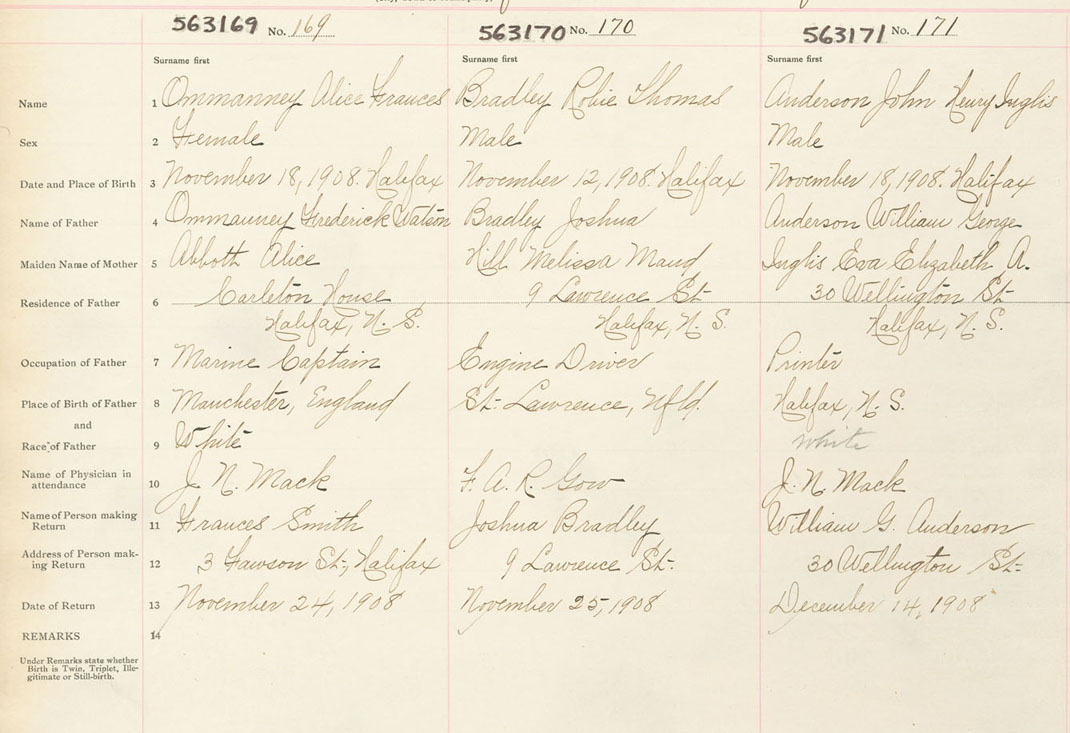 563169 No. 169
563170 No. 170
563171 No. 171
Surname first Surname first Surname first
Name 1 Ommanney Alice Frances Bradley Robie Thomas Anderson John Henry Inglis
Sex 2 Female Male Male
Date and Place of Birth 3 November 18, 1908. Halifax November 12, 1908. Halifax November 18, 1908. Halifax
Name of Father 4 Ommanney Frederick Watson Bradley Joshua Anderson William George
Maiden Name of Mother 5 Abbott Alice Hill Melissa Maud Inglis Eva Elizabeth A.
Residence of Father 6 Carleton House 9 Lawrence St 30 Wellington St
Halifax, N. S. Halifax, N. S. Halifax, N. S.
Occupation of Father 7 Marine Captain Engine Driver Printer
Place of Birth of Father 8 Manchester, England St. Lawrence, Nfld. Halifax, N. S.
and
Race of Father 9 White White
Name of Physician in
attendance 10 J. N. Mack F. A. R. Gow J. N. Mack
Name of Person making
Return 11 Frances Smith Joshua Bradley William G. Anderson
Address of Person mak-
ing Return 12 3 Fawson St., Halifax 9 Lawrence St. 30 Wellington St.
Date of Return 13 November 24, 1908 November 25, 1908 December 14, 1908
REMARKS 14
Under Remarks state whether
Birth is Twin, Triplet, Ille-
gitimate or Still-birth.